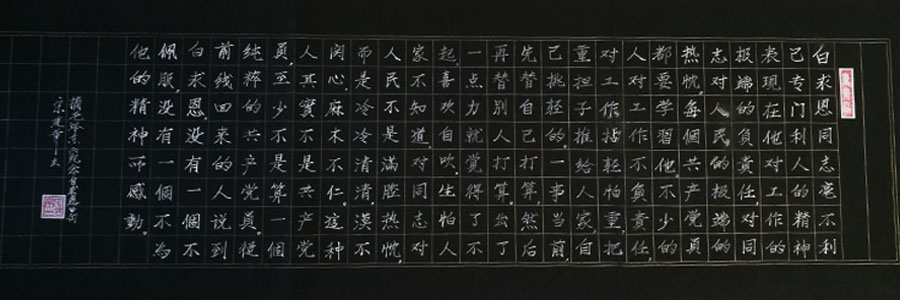 白求恩同志毫不利
己专门利人的精神
表现在他对工作的
极端的負責任,对同
志对人民的极端的
热忱。每個共产党員
都要学習他。不少的
人对工作不負責任,
对工作拈轻怕重,把
重担子推给人家,自
己挑轻的。一事当前,
先替自己打算,然后
再替别人打算。出了
一点力就覚得了不
起,喜欢自吹,生怕人
家不知道。对同志对
人民不是滿腔热忱,
而是冷冷清清,漠不
関心,麻木不仁。這种
人其實不是共产党
員,至少不是算一個
純粹的共产党員。從
前线回來的人说到
白求恩,没有一個不
佩服,没有一個不为
他的精神所感動。